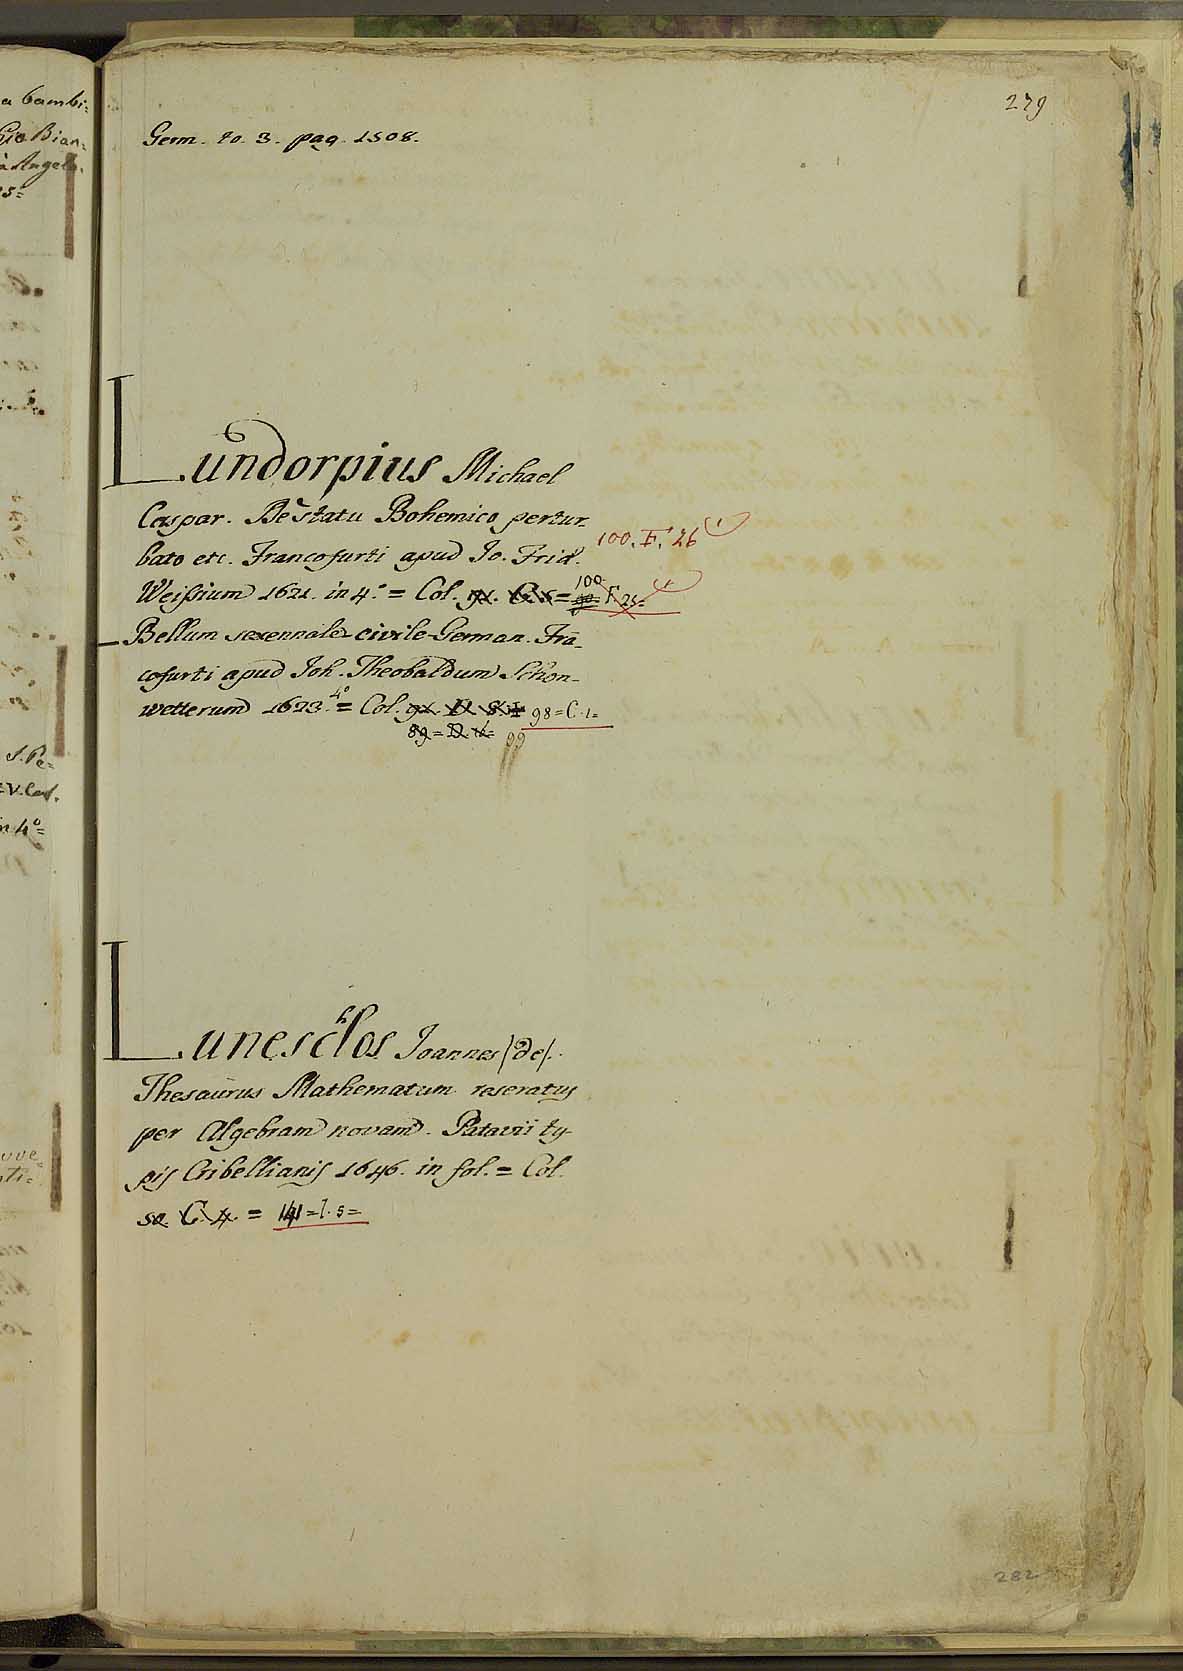 a bambi=
Gio Bian=
à Angelo.
S. Pe=
in 4°=
279
Germ. to. 3. pag. 1508.
Lundorpius Michael
Caspar. De statu Bohemico pertur
bato etc. Francofurti apud Jo. Frid.
100. F. 26
Weissium 1621. in 4.° = Col. 91. C. 5 = 100 F. 25=
Bellum sexennale civile German. Frã-
cofurti apud Joh. Theobaldum Schon-
wetterum 1623. 4° = Col. 91. D. 8. 98=C.1=
89=D. 99
Luneschlos Joannes (de).
Thesaurus Mathematum reseratus
per Algebram novam. Patavii ty-
pis Cribellianis 1646. in fol. = Col.
C. 4. = 141=I.5=
282